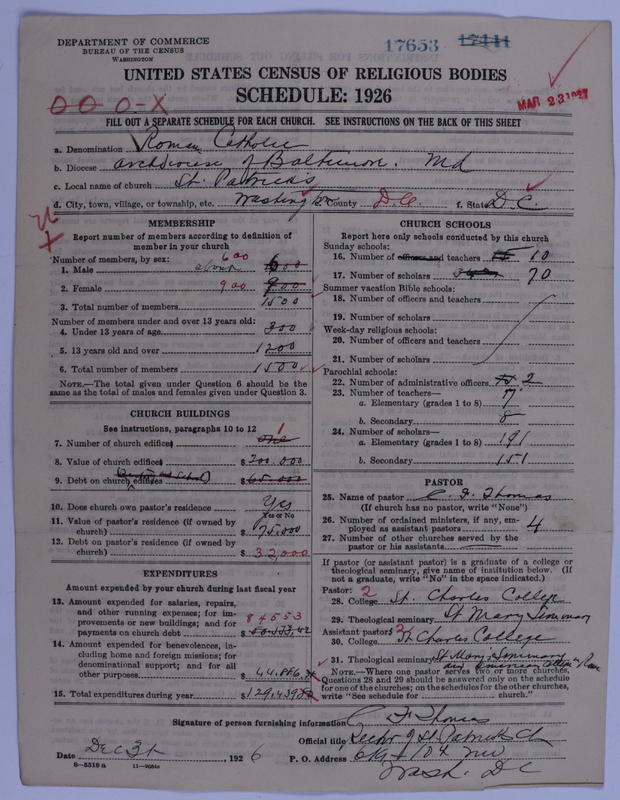 DEPARTMENT OF COMMERCE
BUREAU OF THE CENSUS
WASHINGTON
17653 17444
UNITED STATES CENSUS OF RELIGIOUS BODIES
SCHEDULE: 1926
MAR 23 1927
FILL OUT A SEPARATE SCHEDULE FOR EACH CHURCH. SEE INSTRUCTIONS ON THE BACK OF THIS SHEET
a. Denomination Roman Catholic
b. Diocese archdiocese of Baltimore. Md
c. Local name of church St. Patrick's
d. City, town, village, or township, etc. Washington County D.C. f. State D.C.
MEMBERSHIP
Report number of members according to definition of member in your church
Number of members, by sex: 600
1. Male about 600
2. Female 900 900
3. Total number of members 1500
Number of members under and over 13 years old:
4. Under 13 years of age 300
5. 13 years old and over 1200
6. Total number of members 1500
NOTE.—The total given under Question 6 should be the same as the total of males and females given under Question 3.
CHURCH BUILDINGS
See instructions, paragraphs 10 to 12
7. Number of church edifices one 1
8. Value of church edifices $ 700.000
9. Debt on church edifices $ 65.000
10. Does church own pastor's residence Yes
Yes or No
11. Value of pastor's residence (if owned by church) $ 75.000
12. Debt on pastor's residence (if owned by church) $ 32,000
EXPENDITURES
Amount expended by your church during last fiscal year
13. Amount expended for salaries, repairs, and other running expenses; for improvements or new buildings; and for payments on church debt $ 84553
14. Amount expended for benevolences, including home and foreign missions; for denominational support; and for all other purposes $ 44.886
15. Total expenditures during year $ 129.439
CHURCH SCHOOLS
Report here only schools conducted by this church
Sunday schools:
16. Number of officers and teachers 15 10
17. Number of scholars 70
Summer vacation Bible schools:
18. Number of officers and teachers
19. Number of scholars
Week-day religious schools:
20. Number of officers and teachers
21. Number of scholars
Parochial schools:
22. Number of administrative officers 2
23. Number of teachers—
a. Elementary (grades 1 to 8) 7
b. Secondary 8
24. Number of scholars—
a. Elementary (grades 1 to 8) 191
b. Secondary 151
PASTOR
25. Name of pastor C. F. Thomas
(If church has no pastor, write "None")
26. Number of ordained ministers, if any, employed as assistant pastors 4
27. Number of other churches served by the pastor or his assistants
If pastor (or assistant pastor) is a graduate of a college or theological seminary, give name of institution below. (If not a graduate, write "No" in the space indicated.)
Pastor: 2
28. College St. Charles College
29. Theological seminary St Mary Seminary
Assistant pastor: 3
30. College St Charles College
31. Theological seminary St Mary Seminary
and American College Rome
NOTE.—Where one pastor serves two or more churches, Questions 28 and 29 should be answered only on the schedule for one of the churches; on the schedules for the other churches, write "See schedule for church."
Signature of person furnishing information C F Thomas
Official title Rector of St Patricks Ch
Date Dec 31, 1926 P. O. Address 619 10th St NW
8—5519 a
Wash. DC